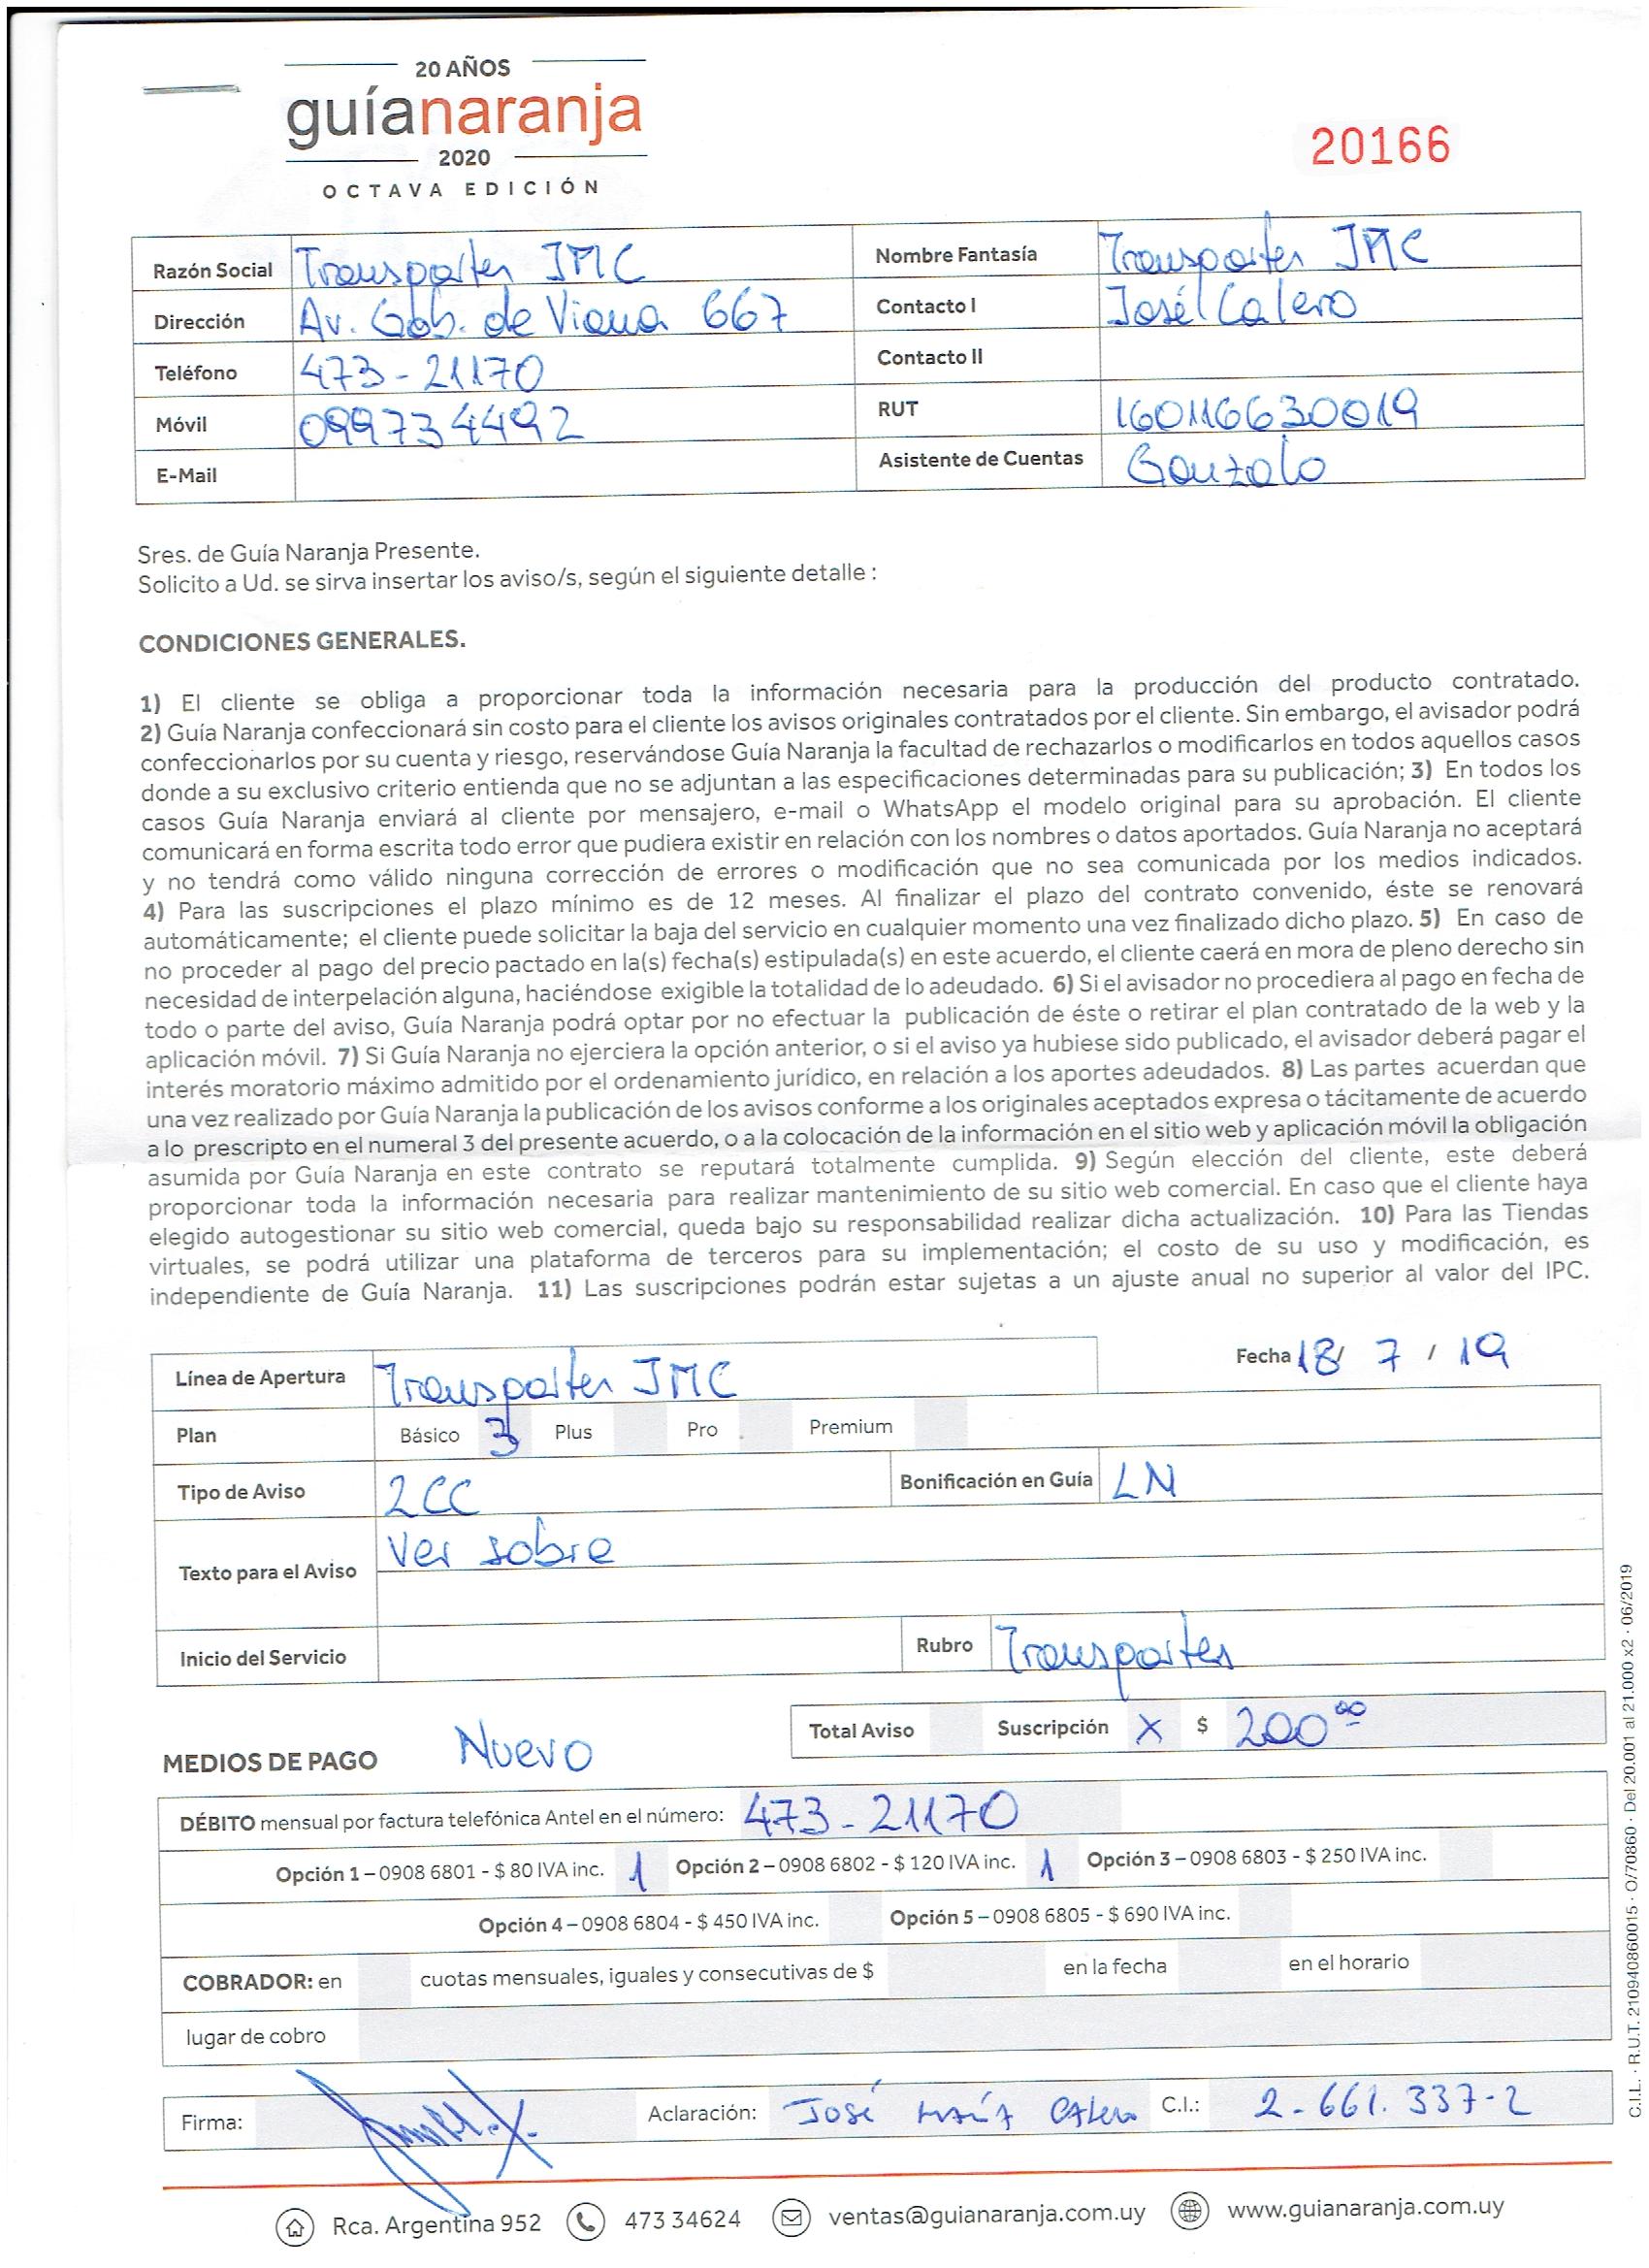 20 AÑOS
guíanaranja
2020
OCTAVA EDICIÓN
20166
Razón Social Transportes JMC Nombre Fantasía Transportes JMC
Dirección Av. Gob. de Viana 667 Contacto I José Calero
Teléfono 473-21170 Contacto II
Móvil 099734492 RUT 160116630019
E-Mail Asistente de Cuentas Gonzalo
Sres. de Guía Naranja Presente.
Solicito a Ud. se sirva insertar los aviso/s, según el siguiente detalle :
CONDICIONES GENERALES.
1) El cliente se obliga a proporcionar toda la información necesaria para la producción del producto contratado.
2) Guía Naranja confeccionará sin costo para el cliente los avisos originales contratados por el cliente. Sin embargo, el avisador podrá
confeccionarlos por su cuenta y riesgo, reservándose Guía Naranja la facultad de rechazarlos o modificarlos en todos aquellos casos
donde a su exclusivo criterio entienda que no se adjuntan a las especificaciones determinadas para su publicación; 3) En todos los
casos Guía Naranja enviará al cliente por mensajero, e-mail o WhatsApp el modelo original para su aprobación. El cliente
comunicará en forma escrita todo error que pudiera existir en relación con los nombres o datos aportados. Guía Naranja no aceptará
y no tendrá como válido ninguna corrección de errores o modificación que no sea comunicada por los medios indicados.
4) Para las suscripciones el plazo mínimo es de 12 meses. Al finalizar el plazo del contrato convenido, éste se renovará
automáticamente; el cliente puede solicitar la baja del servicio en cualquier momento una vez finalizado dicho plazo. 5) En caso de
no proceder al pago del precio pactado en la(s) fecha(s) estipulada(s) en este acuerdo, el cliente caerá en mora de pleno derecho sin
necesidad de interpelación alguna, haciéndose exigible la totalidad de lo adeudado. 6) Si el avisador no procediera al pago en fecha de
todo o parte del aviso, Guía Naranja podrá optar por no efectuar la publicación de éste o retirar el plan contratado de la web y la
aplicación móvil. 7) Si Guía Naranja no ejerciera la opción anterior, o si el aviso ya hubiese sido publicado, el avisador deberá pagar el
interés moratorio máximo admitido por el ordenamiento jurídico, en relación a los aportes adeudados. 8) Las partes acuerdan que
una vez realizado por Guía Naranja la publicación de los avisos conforme a los originales aceptados expresa o tácitamente de acuerdo
a lo prescripto en el numeral 3 del presente acuerdo, o a la colocación de la información en el sitio web y aplicación móvil la obligación
asumida por Guía Naranja en este contrato se reputará totalmente cumplida. 9) Según elección del cliente, este deberá
proporcionar toda la información necesaria para realizar mantenimiento de su sitio web comercial. En caso que el cliente haya
elegido autogestionar su sitio web comercial, queda bajo su responsabilidad realizar dicha actualización. 10) Para las Tiendas
virtuales, se podrá utilizar una plataforma de terceros para su implementación; el costo de su uso y modificación, es
independiente de Guía Naranja. 11) Las suscripciones podrán estar sujetas a un ajuste anual no superior al valor del IPC.
Fecha 18/ 7 / 19
Línea de Apertura Transportes JMC
Plan Básico 3 Plus Pro Premium
Tipo de Aviso 2CC Bonificación en Guía LN
Texto para el Aviso Ver sobre
Inicio del Servicio Rubro Transportes
Total Aviso Suscripción X $ 200 00
MEDIOS DE PAGO Nuevo
DÉBITO mensual por factura telefónica Antel en el número: 473-21170
Opción 1 – 0908 6801 - $ 80 IVA inc. 1 Opción 2 – 0908 6802 - $ 120 IVA inc. 1 Opción 3 – 0908 6803 - $ 250 IVA inc.
Opción 4 – 0908 6804 - $ 450 IVA inc. Opción 5 – 0908 6805 - $ 690 IVA inc.
COBRADOR: en cuotas mensuales, iguales y consecutivas de $ en la fecha en el horario
lugar de cobro
Firma: Aclaración: José María Calero C.I.: 2-661.337-2
Rca. Argentina 952 473 34624 ventas@guianaranja.com.uy www.guianaranja.com.uy
C.I.L. · R.U.T. 210940860015 · O/70860 · Del 20.001 al 21.000 x2 · 06/2019